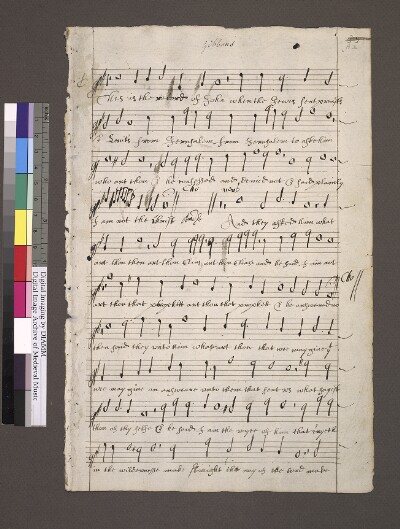 Gibbons
This is the record of John when the Jewes sent preists
& Levits from Jerusalem from Jerusalem to aske him
who art thou & he confessed and denied not & said plainly
Cho
I am not the Christ And they asked him what
art thou then art thou Elias, art thou Elias and he said I am not
Cho
art thou that prophett art thou that prophitt & he answered no
then said they unto him what art thou that wee may give
wee may give an answeare unto them that sent us what sayest
thou of thy selfe & he said I am the voyce of him that cryeth
in the wildernesse make straight the way of the Lord make
Digital Imaging by DIAMM
Digital Image Archive of Medieval Music